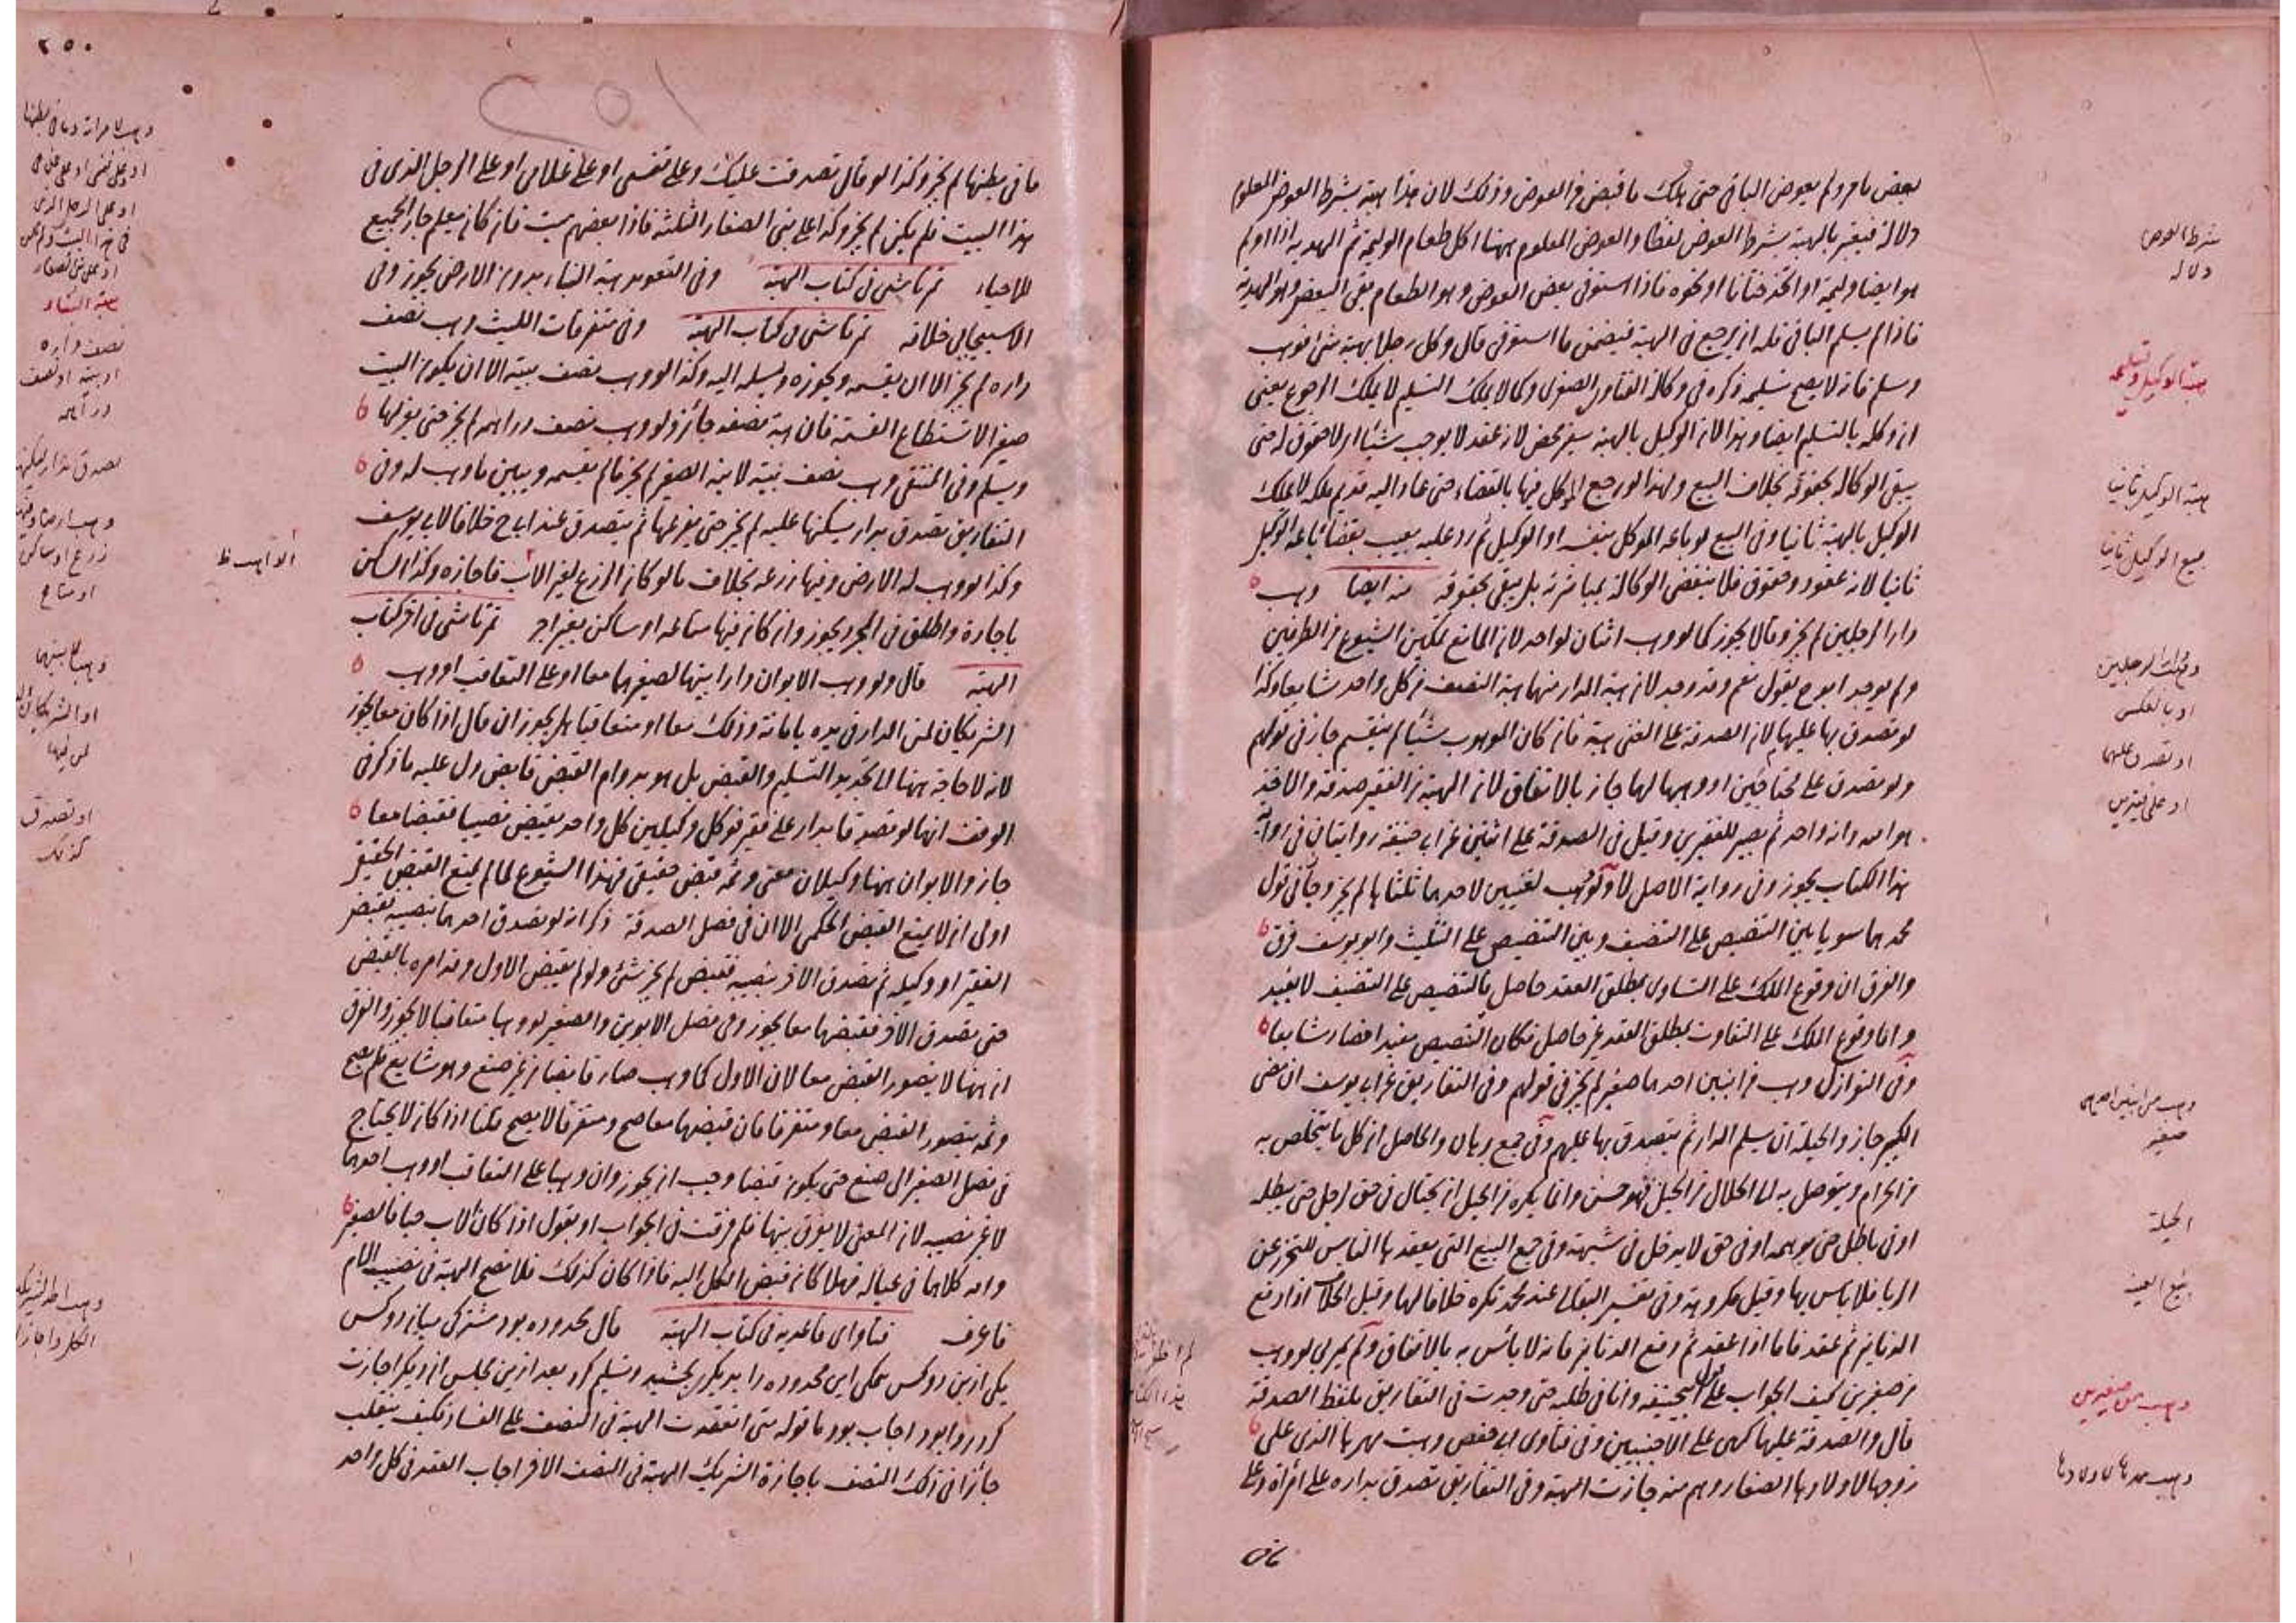 بعض ما مر ولم يعوض الباقي حتى هلك ما قبض من العوض وذلك لان هذا هبة بشرط العوض المعلوم
دلالة فيعتبر بالهبة بشرط العوض لفظا والعوض المعلوم ههنا اكل طعام الوليمة ثم الهدية اذا اولم
هو ايضا وليمة او اتخذ ختانا او نحوه فاذا استوفى بعض العوض وهو الطعام بقي البعض وهو الهدية
فاذا لم يسلم الباقي فله ان يرجع في الهبة فيضمن ما استوفى قال وكل رجلا بهبة شئ فوهب
وسلم فانه لا يصح تسليمه ذكره في وكالة الفتاوى الصغرى وكما لا يملك التسليم لا يملك الرجوع يعني
ان وكله بالتسليم ايضا وهذا لان الوكيل بالهبة سفير محض لانه عقد لا يوجب شيئا اذ لا حقوق له حتى
يبقى الوكالة بحقوقه بخلاف البيع ولهذا لو رجع الموكل فيها بالقضاء حتى عاد اليه قديم ملكه لا يملك
الوكيل بالهبة ثانيا وفي البيع لو باعه الموكل بنفسه او الوكيل ثم رد عليه بعيب بقضاء باعه الوكيل
ثانيا لانه عقد ذو حقوق فلا ينقضي الوكالة بمباشرته بل يبقى بحقوقه منه ايضا وهب
دارا لرجلين لم يجز وقالا يجوز كما لو وهب اثنان لواحد لان المانع تمكن الشيوع في الطرفين
ولم يوجد ابو ح يقول نعم وقد وجد لان هبة الدار منهما هبة النصف من كل واحد شايعا وكذا
لو تصدق بها عليهما لان الصدقة على الغني هبة فان كان الموهوب شيئا لم ينقسم جاز في قولهم
ولو تصدق على محتاجين او وهبها لهما جاز بالاتفاق لان الهبة من الفقير صدقة والآخذ
هو الله وانه واحد ثم يصير للفقيرين وقيل في الصدقة على اثنين عن ابي حنيفة روايتان في رواية
هذا الكتاب يجوز وفي رواية الاصل لا ولو وهب لغنيين لاحدهما ثلثاها لم يجز وجاز في قول
محمد هما سويا بين التنصيص على التنصيف وبين التنصيص على التثليث وابو يوسف فرق
والفرق ان وقوع الملك على التساوي بمطلق العقد حاصل فالتنصيص على التنصيف لا يفيد
واما وقوع الملك على التفاوت بمطلق العقد غير حاصل فكان التنصيص مفيدا فصار شايعا
وفي النوازل وهب من ابنين احدهما صغير لم يجز في قولهم وفي التفاريق عن ابي يوسف ان مضى
الكبير جاز والحيلة ان يسلم الدار ثم يتصدق بها عليهم وفي جمع والحاصل ان كل ما يتخلص به
من الحرام ويتوصل به الى الحلال من الحيل فهو حسن وانما يكره من الحيل ان يحتال في حق لرجل حتى يبطله
او في باطل حتى يوهمه او في حق لا يدخل في شبهة وفي جمع البيع التي يعقدها الناس للتحرز عن
الربا فلا باس بها وقيل مكروهة وفي تفسير البقالي عند محمد تكره خلافا لهما وقيل الخلاف اذا دفع
الدنانير ثم عقد فاما اذا عقد ثم دفع الدنانير فانه لا باس به بالاتفاق ولم يمر بي لو وهب
من صغيرين كيف الجواب على قول ابي حنيفة وانا في طلبه حتى وجدت في التفاريق بلفظ الصدقة
قال والصدقة عليهما كهي على الاجنبيين وفي فتاوى ابي حفص وهبت مهرها الذي على
زوجها لاولادها الصغار وهم منه جازت الهبة وفي التفاريق تصدق بداره على امرأة وعلى
مافي
شرط العوض
دلالة
هبة الوكيل وتسليمه
هبة الوكيل ثانيا
بيع الوكيل ثانيا
وهب لرجلين
او بالعكس
او تصدق عليهما
او على فقيرين
وهب من ابنين احدهما
صغير
الحيلة
بيع العينة
وهب من صغيرين
وهبت مهرها لاولادها
٢٥٠
ما في بطنها لم يجز وكذا لو قال تصدقت عليك وعلى نفسي او على غلامي او على الرجل الذي في
هذا البيت فلم يكن لم يجز وكذا على بني الصغار الثلثة فاذا بعضهم ميت فان كان يعلم جاز الجميع
للاحياء تمرتاشي في كتاب الهبة وفي التعويد هبة البناء بدون الارض يجوز وفي
الاسبيجابي خلافه تمرتاشي في كتاب الهبة وفي متفرقات الليث وهب نصف
داره لم يجز الا ان يقسمه ويحوزه ويسلمه اليه وكذا لو وهب نصف بيته الا ان يكون البيت
صغيرا لا يستطاع القسمة فان هبة نصفه جائز ولو وهب نصف دراهمه لم يجز حتى يفرزها
ويسلم وفي المنتقى وهب نصف بيته لابنه الصغير لم يجز ما لم يقسمه ويبين ما وهب له وفي
التفاريق تصدق بدار يسكنها عليه لم يجز حتى يفرغها ثم يتصدق عند ابي ح خلافا لابي يوسف
وكذا لو وهب له الارض وفيها زرعه بخلاف ما لو كان الزرع لغير الاب فاجازه وكذا الساكن
باجارة واطلق في المجرد يجوز وان كان فيها متاعه او ساكن بغير اجر تمرتاشي في اخر كتاب
الهبة قال ولو وهب الابوان دارا بينهما لصغيرهما معا او على التعاقب او وهب
الشريكان لمن الدار في يده بامانة وذلك معا او متعاقبا هل يجوز ان قال اذا كان معا يجوز
لانه لا حاجة ههنا الى تجديد التسليم والقبض بل هو بدوام القبض قابض دل عليه ما ذكر في
الوقف انهما لو تصدقا بدار على فقير فوكل وكيلين كل واحد بقبض نصيب فقبضا معا
جاز والابوان ههنا وكيلان معنى وثمه قبض حقيقي فهذا الشيوع لما لم يمنع القبض الحقيقي
اولى ان لا يمنع القبض الحكمي الا ان في فصل الصدقة ذكر انه لو تصدق احدهما بنصيبه فقبض
الفقير او وكيله ثم تصدق الآخر بنصيبه فقبض لم يجز شئ ولو لم يقبض الاول وقد امره بالقبض
حتى تصدق الآخر فقبضهما معا يجوز وفي فصل الابوين والصغير لو وهبا متعاقبا لا يجوز والفرق
ان ههنا لا يتصور القبض معا لان الاول كما وهب صار قابضا من غير صنع وهو شايع فلم يصح
وثمه يتصور القبض معا ومتفرقا فان قبضهما معا صح ومتفرقا لا يصح قلنا اذا كان لا يحتاج
في فصل الصغير الى صنع حتى يكون قبضا وجب ان يجوز وان وهبا على التعاقب او وهب احدهما
لا غير نصيبه لان المعنى لا يفرق بينهما فلم فرقت في الجواب او يقول اذا كان الاب حيا فالصغير
وامه كلاهما في عياله فهلا كان قبض الكل اليه فاذا كان كذلك فلا تصح الهبة في نصيب الام
فاعرف فتاواى قاعديه في كتاب الهبة قال محدوده بود مشتركى ميان دو كس
يكى ازين دو كس همكى اين محدوده را بديكرى بخشيد وتسليم كرد بعد ازين مجلس ان ديكر اجازت
كرد روا بود اجاب بود ما قوله متى انعقدت الهبة في النصف على الفساد فكيف ينقلب
جائزا في ذلك النصف باجازة الشريك الهبة في النصف الآخر اجاب العقد في كل واحد
وهب لامرأته وما في بطنها
او على نفسي او على غلامي
او على الرجل الذي
في هذا البيت ولم يكن
او على بني الصغار
هبة البناء
نصف داره
او بيته او نصف
دراهمه
تصدق بدار يسكنها
وهب ارضا وفيها
زرع او ساكن
او متاع
وهبا لابنهما
او الشريكان
لمن فيها
او تصدق
كذلك
وهب احد الشريكين
الكل واجاز